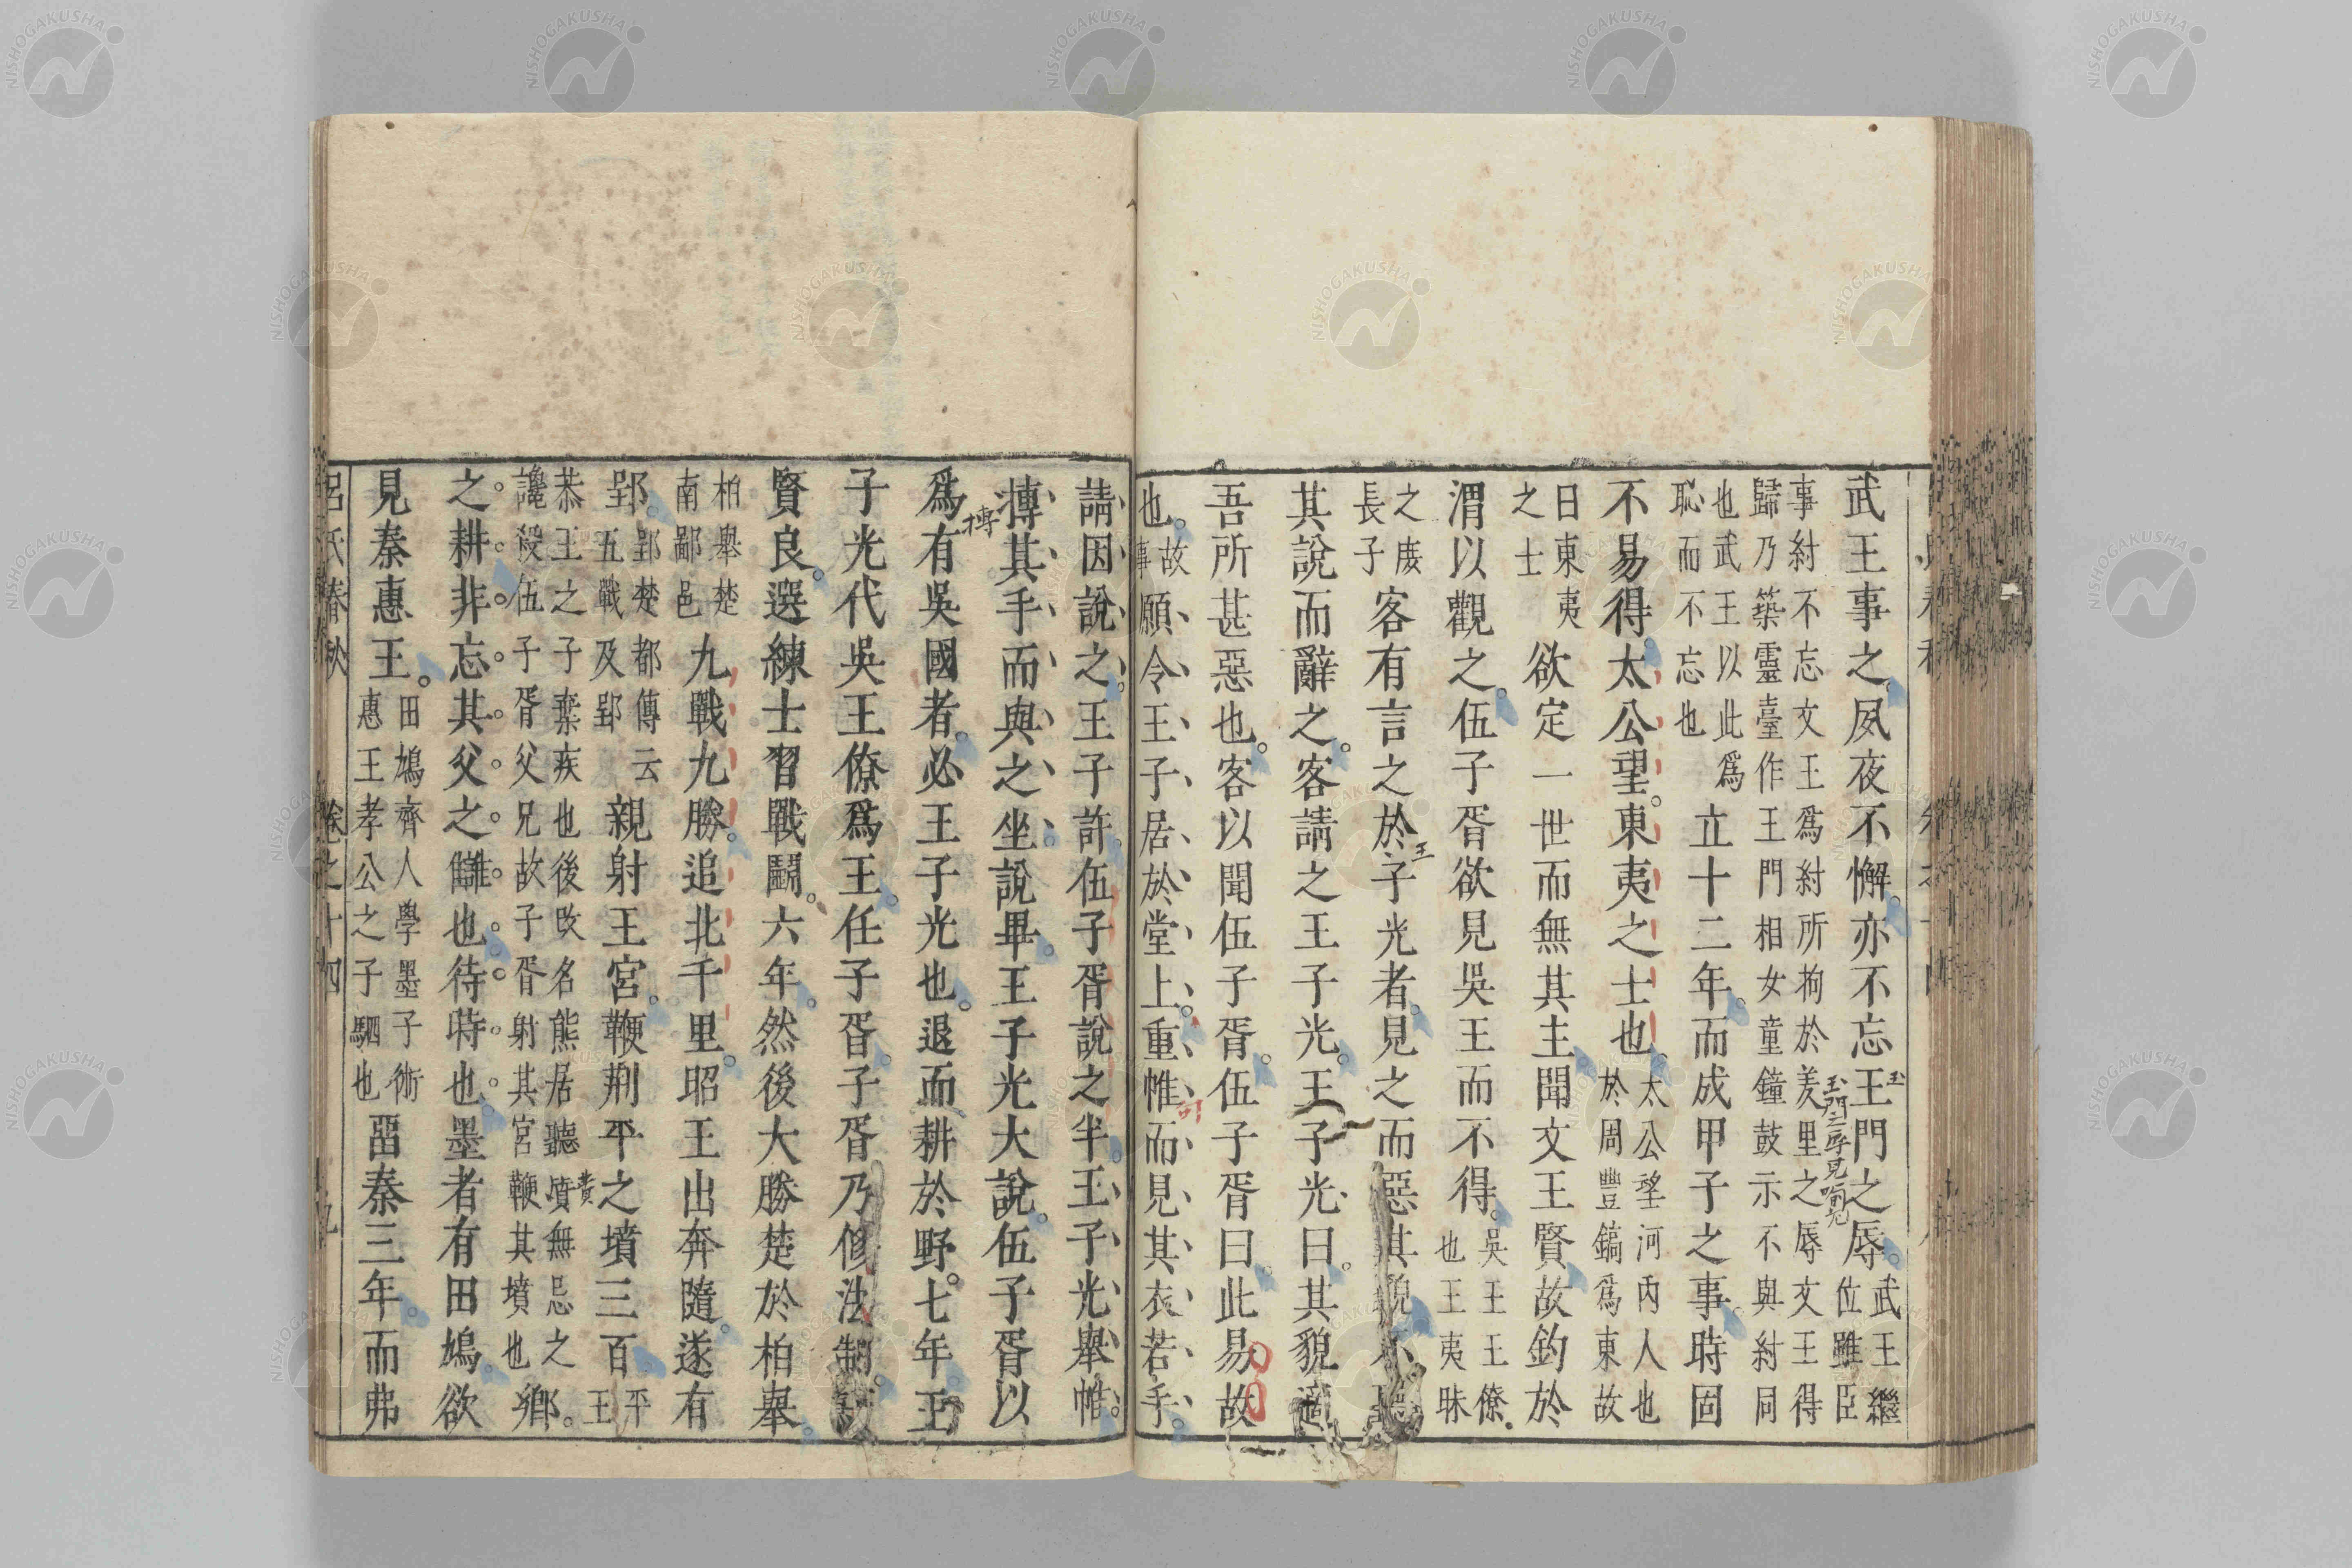 武王事之夙夜不懈亦不忘王門之辱武王繼位雖臣
事紂不忘文王爲紂所拘於羑里之辱文王得歸乃築靈臺作王門相女童鐘鼓示不與紂同
也武王以此爲恥而不忘也立十二年而成甲子之事時固
不易得太公望東夷之士也太公望河內人也於周豐鎬爲東故
曰東夷之士欲定一世而無其主聞文王賢故釣於
渭以觀之伍子胥欲見吳王而不得吳王王僚也王夷昧
之庻長子客有言之於子光者見之而惡其貌不
其說而辭之客請之王子光王子光曰其貌適
吾所甚惡也客以聞伍子胥伍子胥曰此易故
也故事願令王子居於堂上重帷而見其衣若手
請因說之王子許伍子胥說之半王子光舉帷
搏其手而與之坐說畢王子光大說伍子胥以
爲有吳國者必王子光也退而耕於野七年王
子光代吳王僚爲王任子胥子胥乃修法制
賢良選練士習戰鬭六年然後大勝楚於柏舉
柏舉楚南鄙邑九戰九勝追北千里昭王出奔隨遂有
郢郢楚都傳云五戰及郢親射王宮鞭荆平之墳三百平王
恭王之子棄疾也後改名熊居聽讒殺伍子胥父兄故子胥射其宮鞭其墳也鄉
之耕非忘其父之讎也待時也墨者有田鳩欲
見秦惠王田鳩齊人學墨子術惠王孝公之子駟也畱秦三年而弗
呂氏春秋 卷之十四 九
玉
搏
王
費
NISHOGAKUSHA